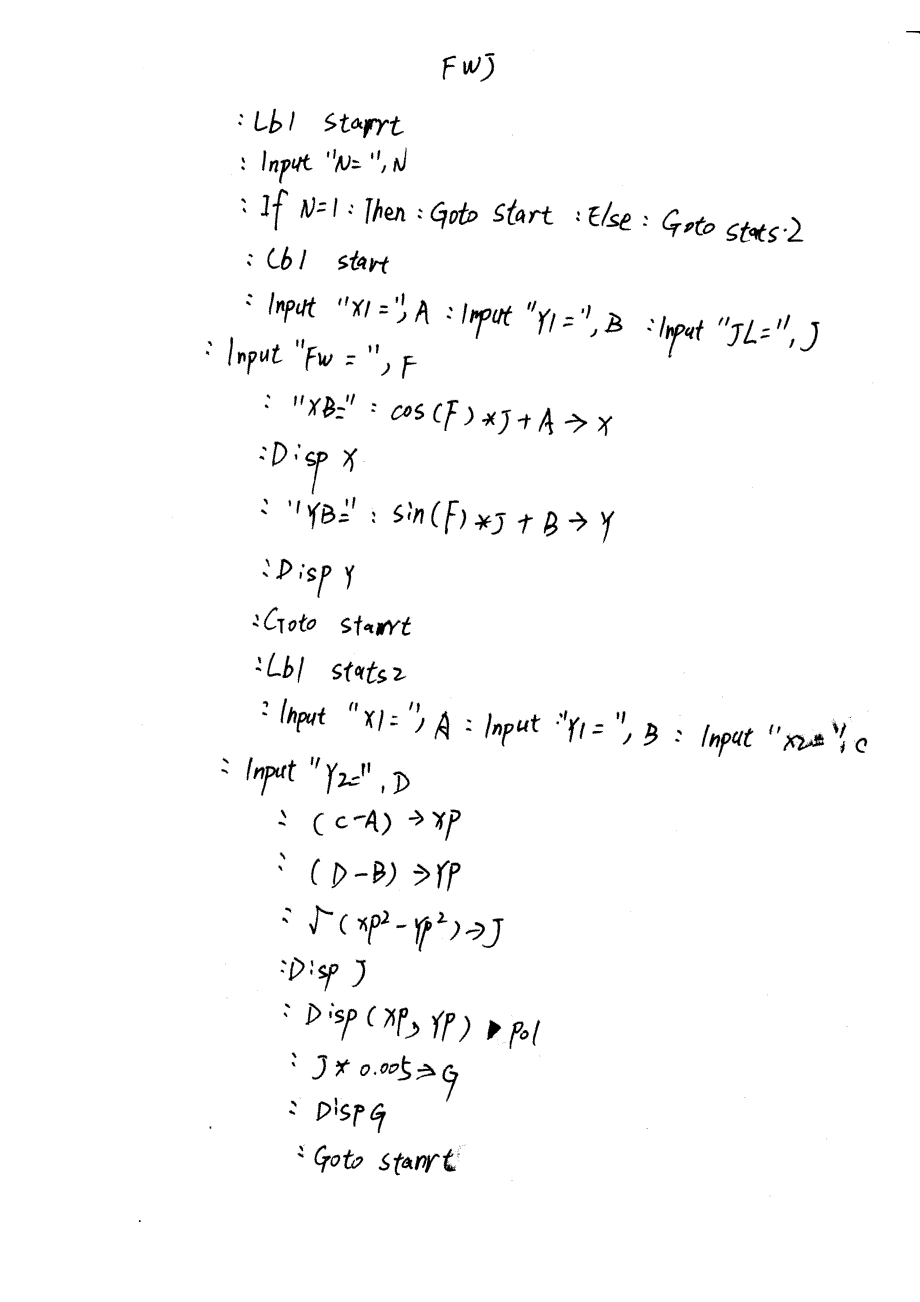 FWJ
:Lbl stamrt
:Input "N=",N
:If N=1:Then:Goto start:Else:Goto stats2
:Lbl start
:Input "X1=",A:Input "Y1=",B:Input "JL=",J
:Input "FW=",F
:"XB=":cos(F)*J+A→X
:Disp X
:"YB=":sin(F)*J+B→Y
:Disp Y
:Goto stamrt
:Lbl stats2
:Input "X1=",A:Input "Y1=",B:Input "X2=",C
:Input "Y2=",D
:(C-A)→XP
:(D-B)→YP
:√(XP²-YP²)→J
:Disp J
:Disp(XP,YP)▶Pol
:J*0.005→G
:Disp G
:Goto stamrt